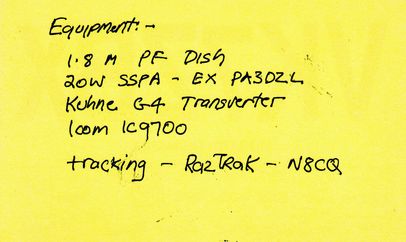 Equipment:-
1.8 M PF Dish
20W SSPA - EX PA3DZL
Kuhne G4 Transverter
Icom IC9700
tracking - RazTRak - N8CQ